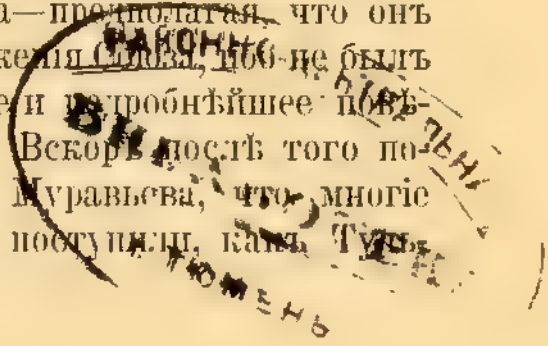 а—предполагая, что онъ
женія Союза, поб не былъ
е и подробнѣйшее повѣ-
Вскорѣ послѣ того по-
Муравьева, что многіе
поступили, какъ Туль-
ТЮМЕНЬ